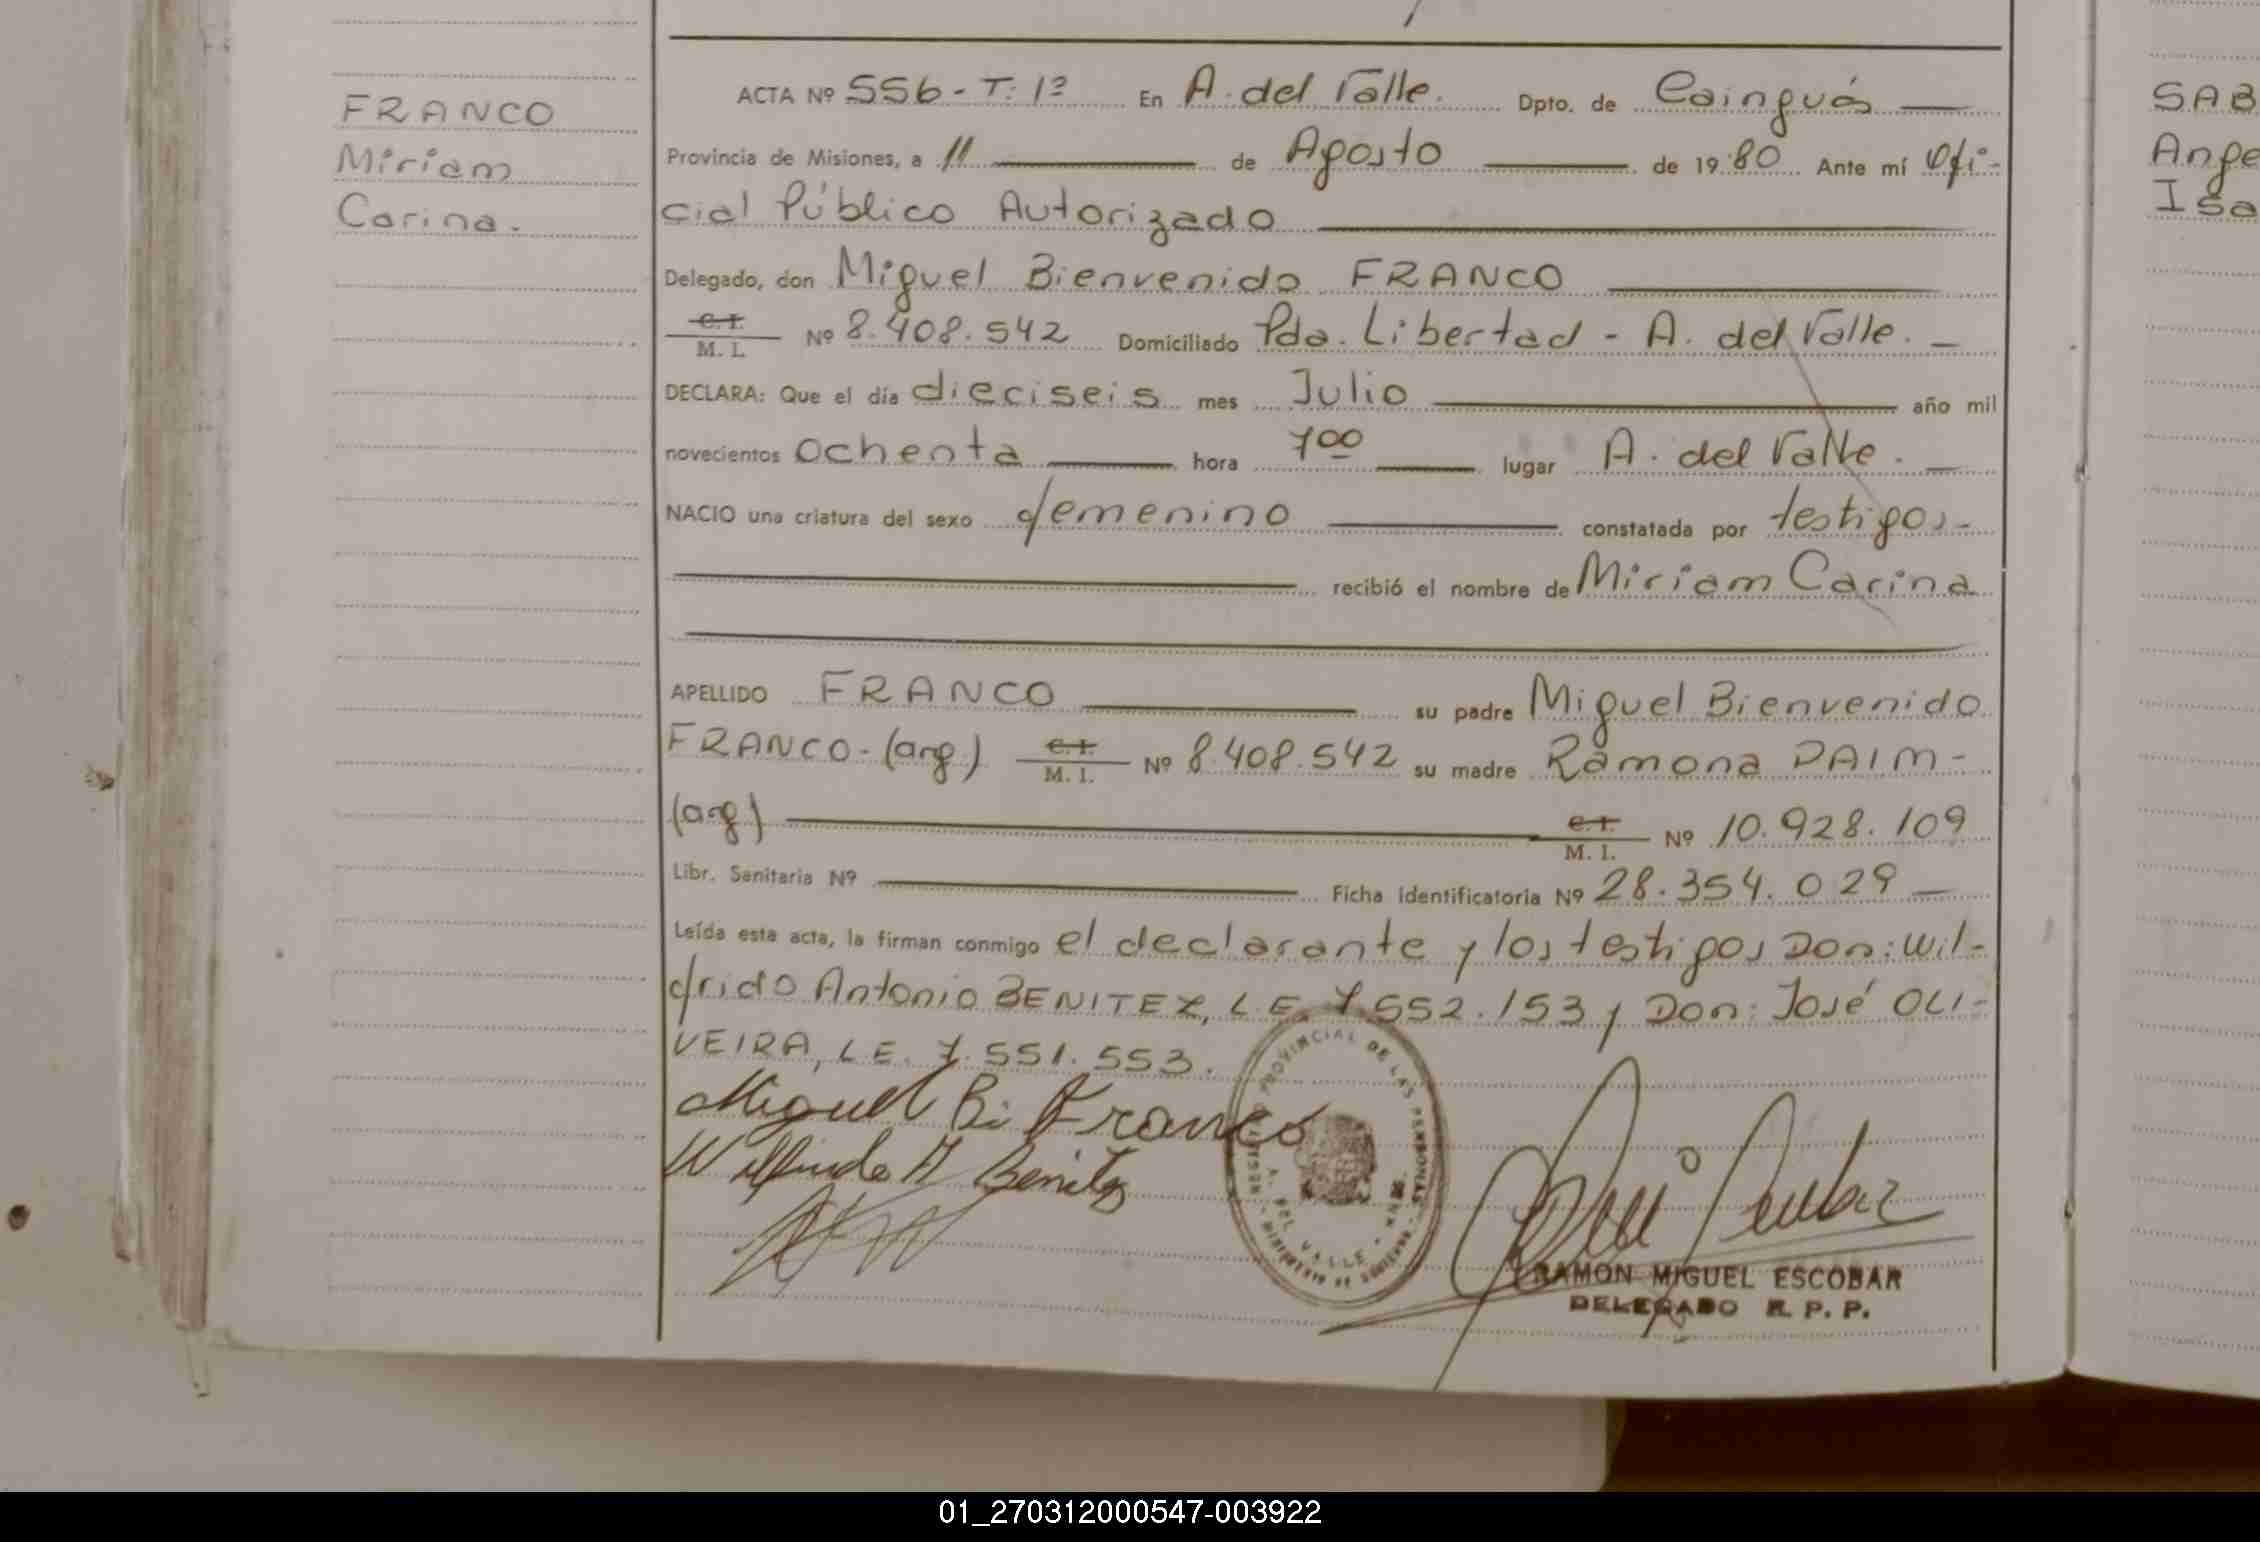 FRANCO
Miriam
Carina.
ACTA Nº 556 - T. 1º En A. del Valle. Dpto. de Cainguás
Provincia de Misiones, a 11 de Agosto de 1980 Ante mí Ofi-
cial Público Autorizado
Delegado, don Miguel Bienvenido FRANCO
C. I.
M. I. Nº 8.408.542 Domiciliado Pda. Libertad - A. del Valle.
DECLARA: Que el día dieciseis mes Julio año mil
novecientos ochenta hora 7 00 lugar A. del Valle.
NACIO una criatura del sexo femenino constatada por testigos-
recibió el nombre de Miriam Carina
APELLIDO FRANCO su padre Miguel Bienvenido
FRANCO - (arg) C. I. M. I. Nº 8.408.542 su madre Ramona DAIM -
(arg) C. I. M. I. Nº 10.928.109
Libr. Sanitaria Nº Ficha Identificatoria Nº 28.354.029
Leída esta acta, la firman conmigo el declarante y los testigos Don: Wil-
frido Antonio BENITEZ, L.E. 7.552.153 y Don: José OLI-
VEIRA, L.E. 7.551.553.
Miguel Bi Franco
Wilfrido A Benitez
REGISTRO PROVINCIAL DE LAS PERSONAS
A. DEL VALLE - MNES.
MINISTERIO DE GOBIERNO
RAMON MIGUEL ESCOBAR
DELEGADO R. P. P.
SAB
Ange
Isa
01_270312000547-003922